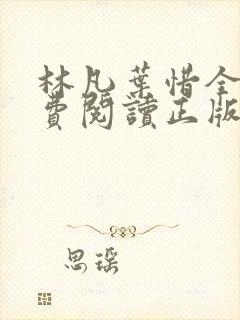 林凡葉惜全
費閱讀正版
思瑤